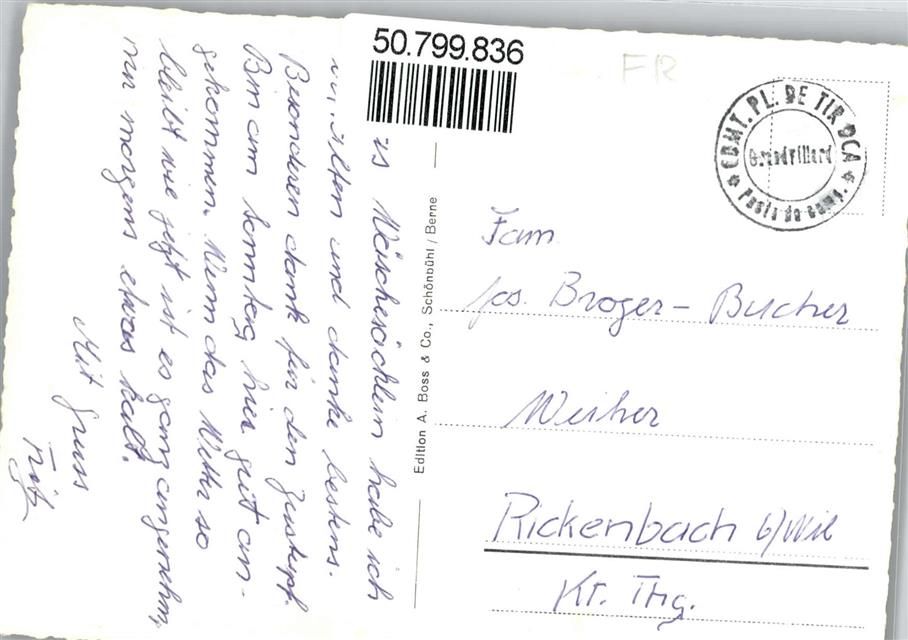 50.799.836
FR
CDMT. PL. DE TIR DCA
Grandvillard
Poste de camp.
Wäschesäcklein habe ich
erhalten und danke bestens.
Besonderen dank für den Gustupf.
Bin am Sonntag hier gut an-
gekommen. Wenn das Wetter so
bleibt wie jetzt ist es ganz angenehm,
nur morgens etwas kalt.
Mit Gruss
Edition A. Boss & Co., Schönbühl / Berne
Fam.
Jos. Broger - Bucher
Weiher
Rickenbach b/Wil
Kt. Thg.